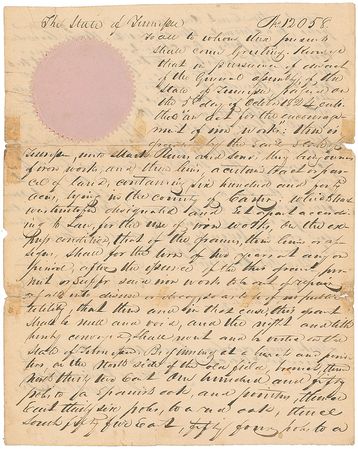 The State of Tennessee No 12058
To all to whom these presents
shall come Greeting: Know ye
that in pursuance of an act
of the General assembly of the
State of Tennessee passed on
the day of October 1824
"an act for the encourage
ment of iron works: there is
granted by the said State of
Tennessee unto and sons, they being owners
of iron works, and their heirs, a certain tract or par
cel of land, containing six hundred and forty
acres, lying in the county of Carter, which has
been designated and Set apart accord
ing to Law, for the use of iron works, on the ex
press condition, that if the grantees, their heirs or as
signs, shall for the term of two years at any one
period, after the of this grant per
mit or suffer said iron works to be out of repair
tility, that then and in that case, this grant
shall be null and void, and the right and title
hereby conveyed shall revert and be vested in the
State of Tennessee. Beginning at a and
on the North side of the old field, thence
North thirty two East One hundred and fifty
poles to a Spanish oak, and thence
East thirty six poles, to a red oak, thence
South fifty five East, fifty four poles, to a